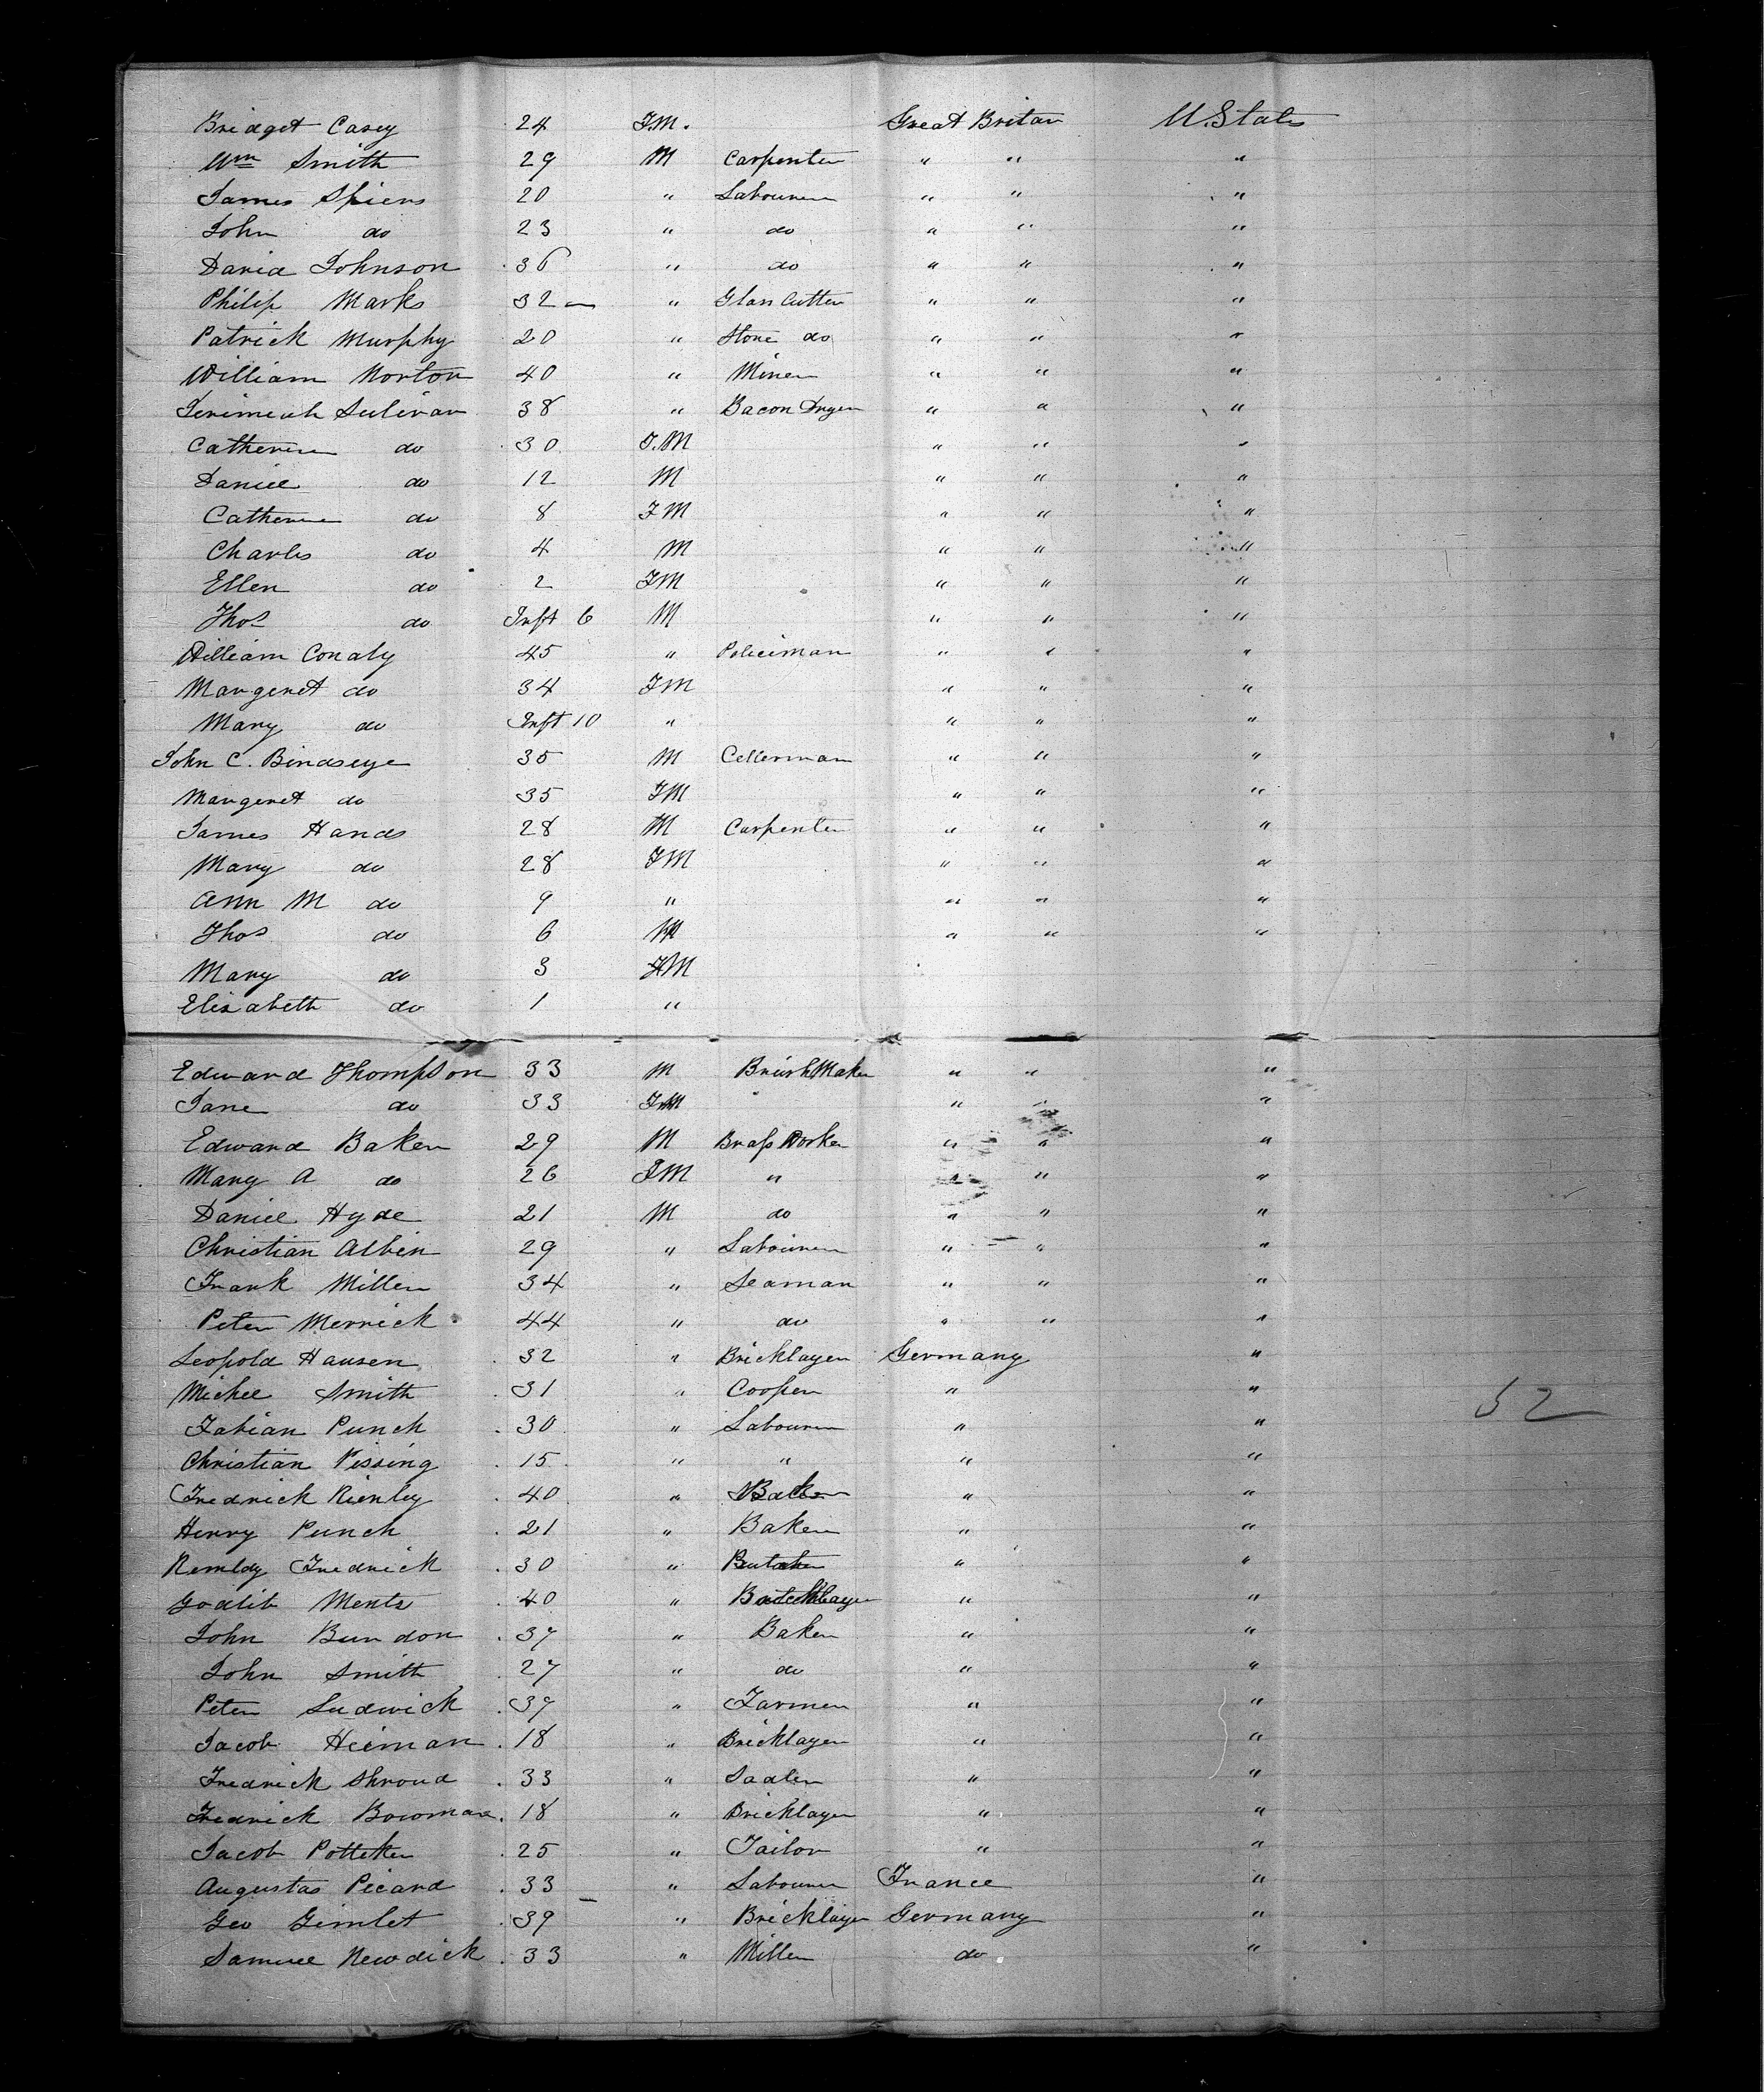 Bridget Casey 24 F.M. Great Britan U. States
Wm Smith 29 M Carpenter " " "
James Spiers 20 " Labourer " " "
John do 23 " do " " "
David Johnson 36 " do " " "
Philip Marks 32 " Glass Cutter " " "
Patrick Murphy 20 " Stone do " " "
William Norton 40 " Miner " " "
Jerimeah Sulivan 38 " Bacon Dryer " " "
Catherine do 30 F.M " " "
Daniel do 12 M " " "
Catherine do 8 FM " " "
Charles do 4 M " " "
Ellen do 2 FM " " "
Thos do Inft 6 M " " "
William Conaly 45 " Policiman " " "
Margeret do 34 FM " " "
Mary do Inft 10 " " " "
John C. Birdseye 35 M Cellerman " " "
Margeret do 35 FM " " "
James Hands 28 M Carpenter " " "
Mary do 28 FM " " "
Ann M do 9 " " " "
Thos do 6 M " " "
Mary do 3 FM
Elizabeth do 1 "
Edward Thompson 33 M Brush Maker " " "
Jane do 33 FM " " "
Edward Baker 29 M Brass Worker " " "
Mary A do 26 FM " " " "
Daniel Hyde 21 M do " " "
Christian Albin 29 " Labourer " " "
Frank Miller 34 " Seaman " " "
Peter Merrick 44 " do " " "
Leopold Hausen 32 " Bricklayer Germany "
Michel Smith 31 " Cooper " "
Fabian Punch 30 " Labourer " "
52
Christian Pissing 15 " " " "
Fredrick Rienley 40 " " "
Henry Punch 21 " Baker " "
Fredrick 30 " Butcher " "
Godlib Ments 40 " " "
John Bundon 37 " Baker " "
John Smith 27 " do " "
Peter Ludwick 37 " Farmer " "
Jacob Heiman 18 " Bricklayer " "
Fredrick Shroud 33 " Sadler " "
Fredrick Bowman 18 " Bricklayer " "
Jacob Potteker 25 " Tailor " "
Augustas Picard 33 " Labourer France "
Geo Gimlet 39 " Bricklayer Germany "
Samuel Newdick 33 " Miller do "